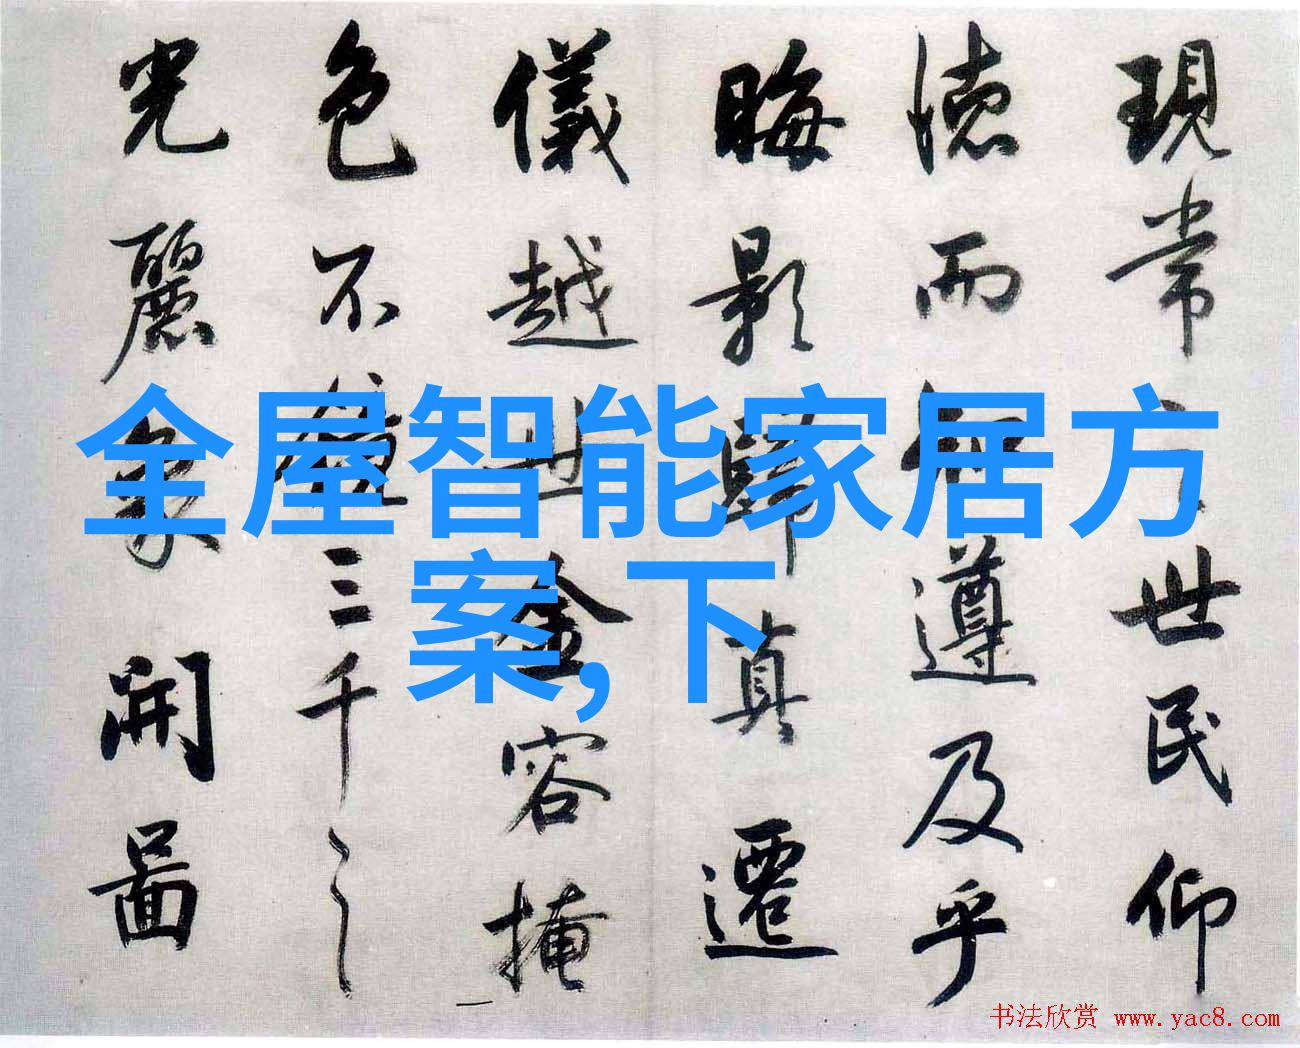 現常之世民仰
德而知遵及乎
晦影歸真遷
儀越世金容掩
色不鏡三千之
光麗象開圖
全屋智能家居方
案,下
书法欣赏 www.yac8.com